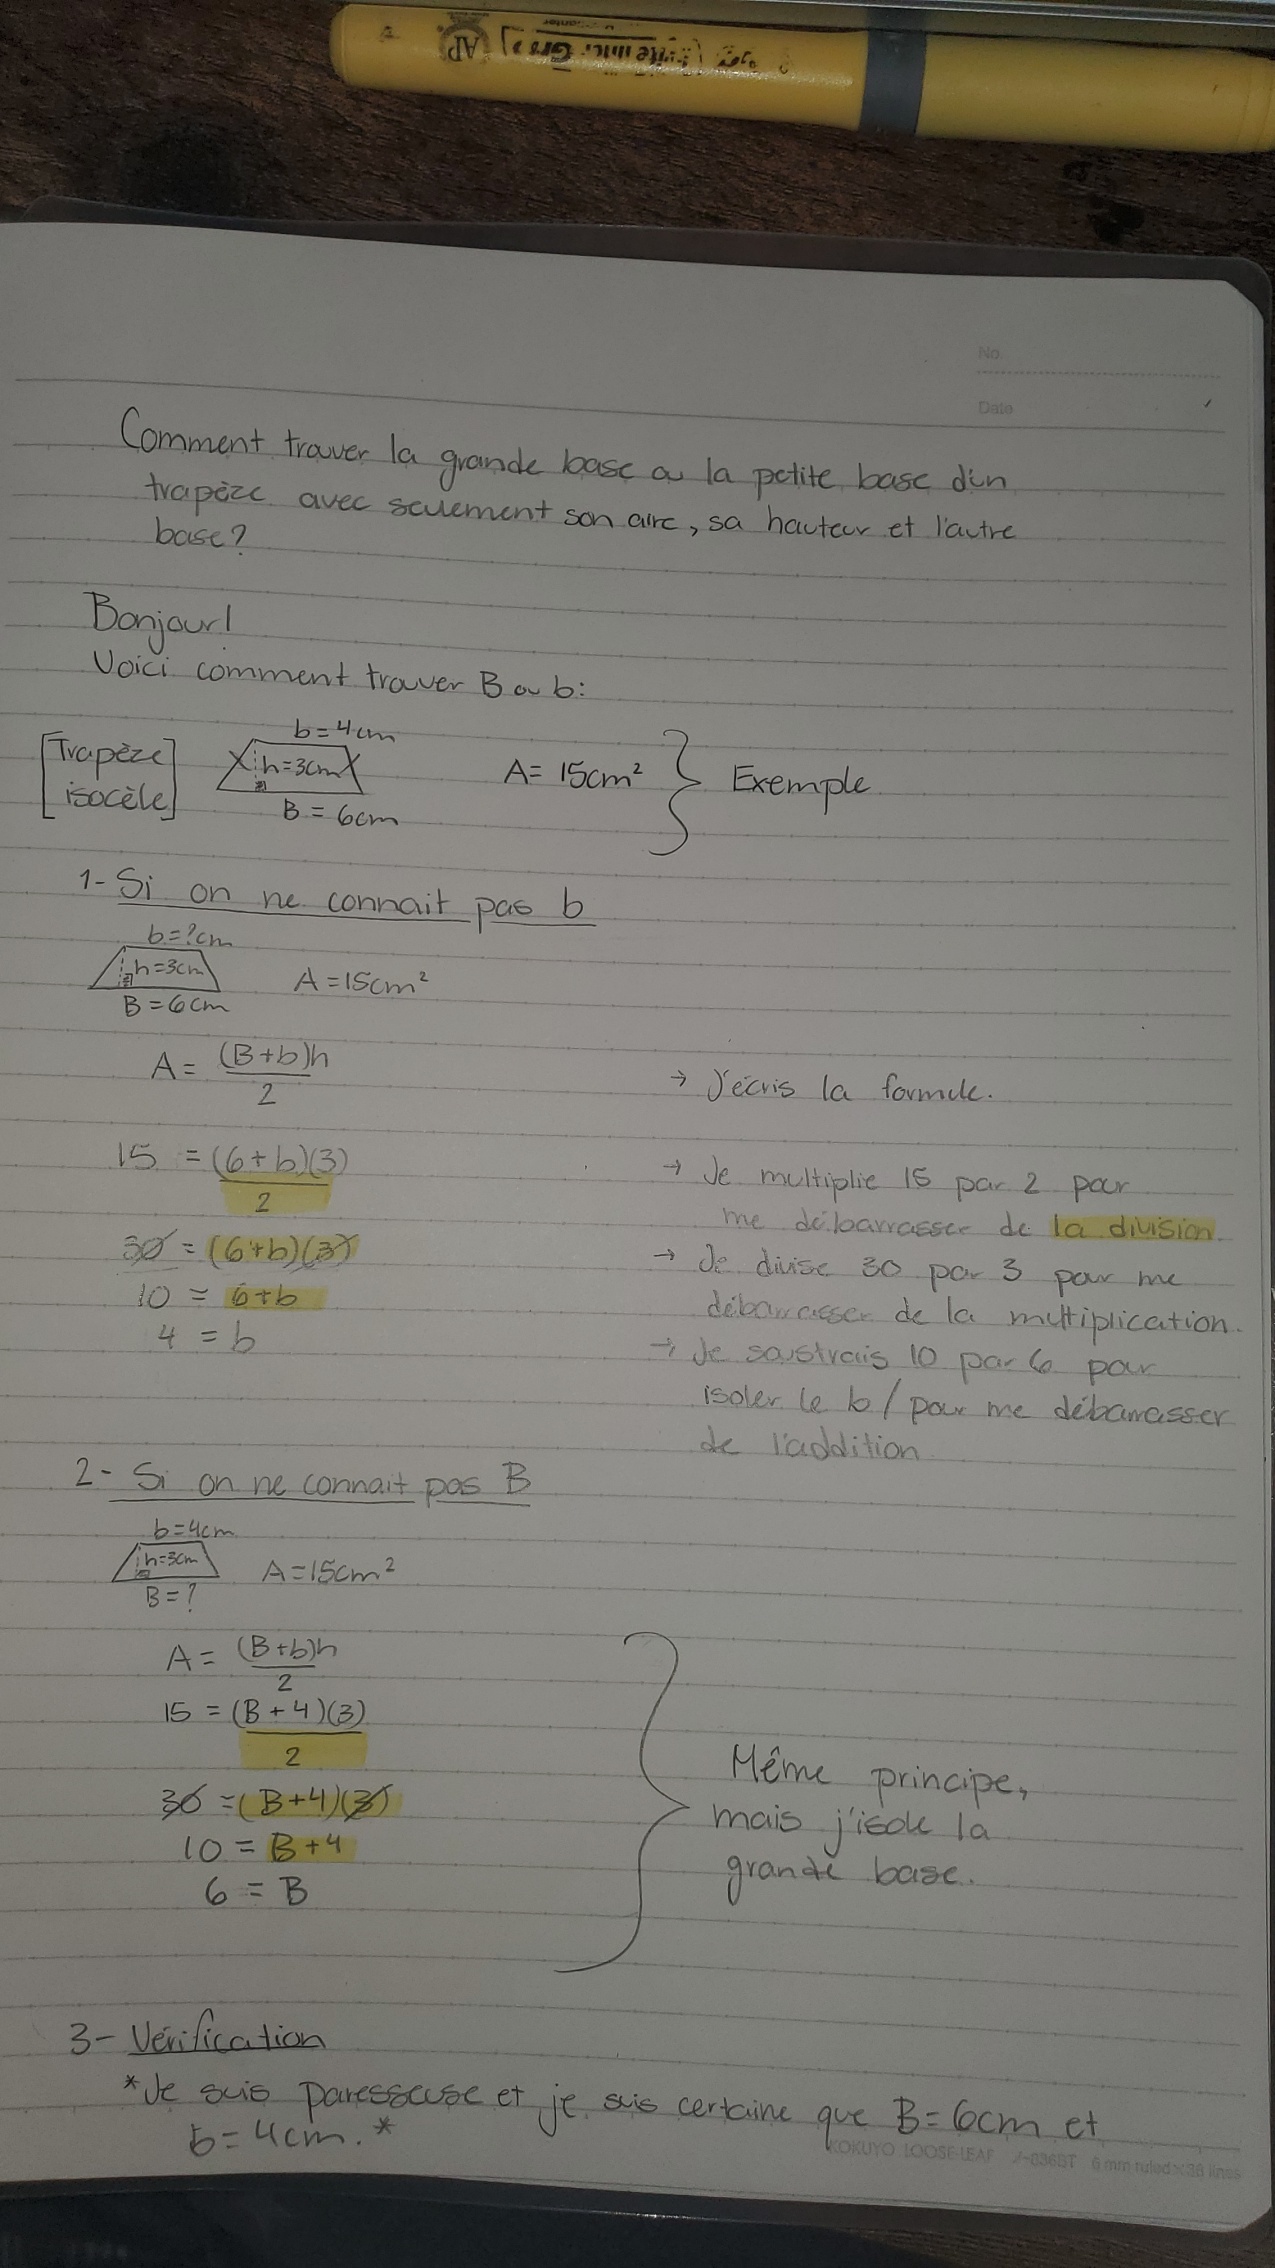 No.
Date
Comment trouver la grande base ou la petite base d'un
trapèze avec seulement son aire, sa hauteur et l'autre
base?
Bonjour!
Voici comment trouver B ou b:
[Trapèze isocèle]
b=4cm
h=3cm
B=6cm
A= 15cm²
Exemple
1- Si on ne connait pas b
b=?cm
h=3cm
B=6cm
A=15cm²
A= (B+b)h / 2
→ J'écris la formule.
15 = (6+b)(3) / 2
→ Je multiplie 15 par 2 pour
me débarrasser de la division.
30 = (6+b)(3)
→ Je divise 30 par 3 pour me
débarrasser de la multiplication.
10 = 6+b
4 = b
→ Je soustrais 10 par 6 pour
isoler le b / pour me débarrasser
de l'addition
2- Si on ne connait pas B
b=4cm
h=3cm
B=?
A=15cm²
A= (B+b)h / 2
15 = (B+4)(3) / 2
30 =(B+4)(3)
10 = B+4
6 = B
Même principe,
mais j'isole la
grande base.
3- Vérification
*Je suis paresseuse et je suis certaine que B=6cm et
b=4cm.*
KOKUYO LOOSE-LEAF 6 mm ruled×36 lines